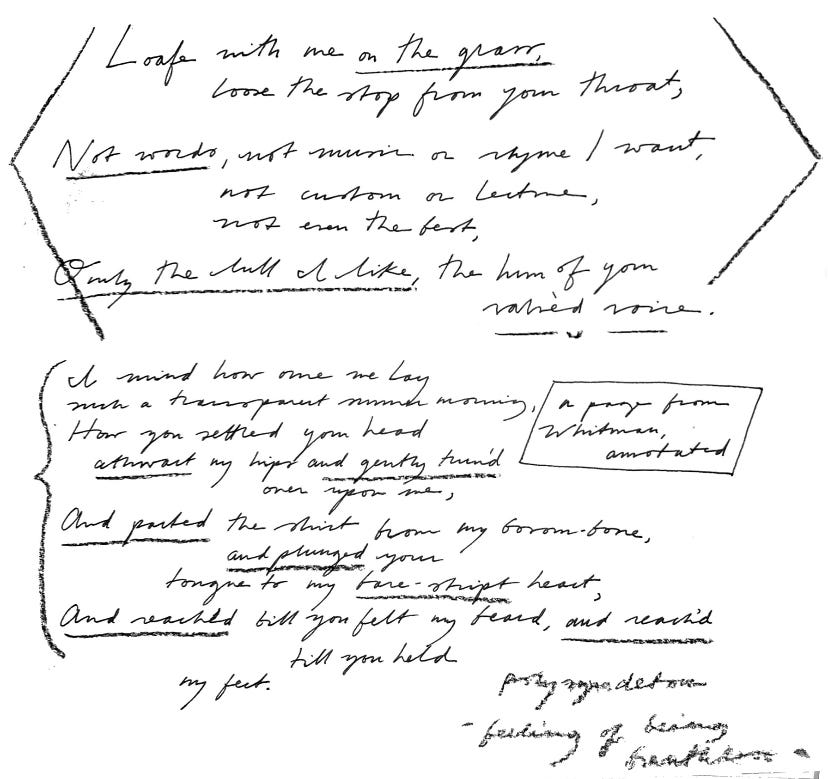 Loafe with me on the grass,
loose the stop from your throat,
Not words, not music or rhyme I want,
not custom or lecture,
not even the best,
Only the lull I like, the hum of your
valvèd voice.
I mind how once we lay
such a transparent summer morning,
How you settled your head
athwart my hips and gently turn'd
over upon me,
a page from
Whitman,
annotated
And parted the shirt from my bosom-bone,
and plunged your
tongue to my bare-stript heart,
And reach'd till you felt my beard, and reach'd
till you held
my feet.
polysyndeton
- feeling of being
breathless -